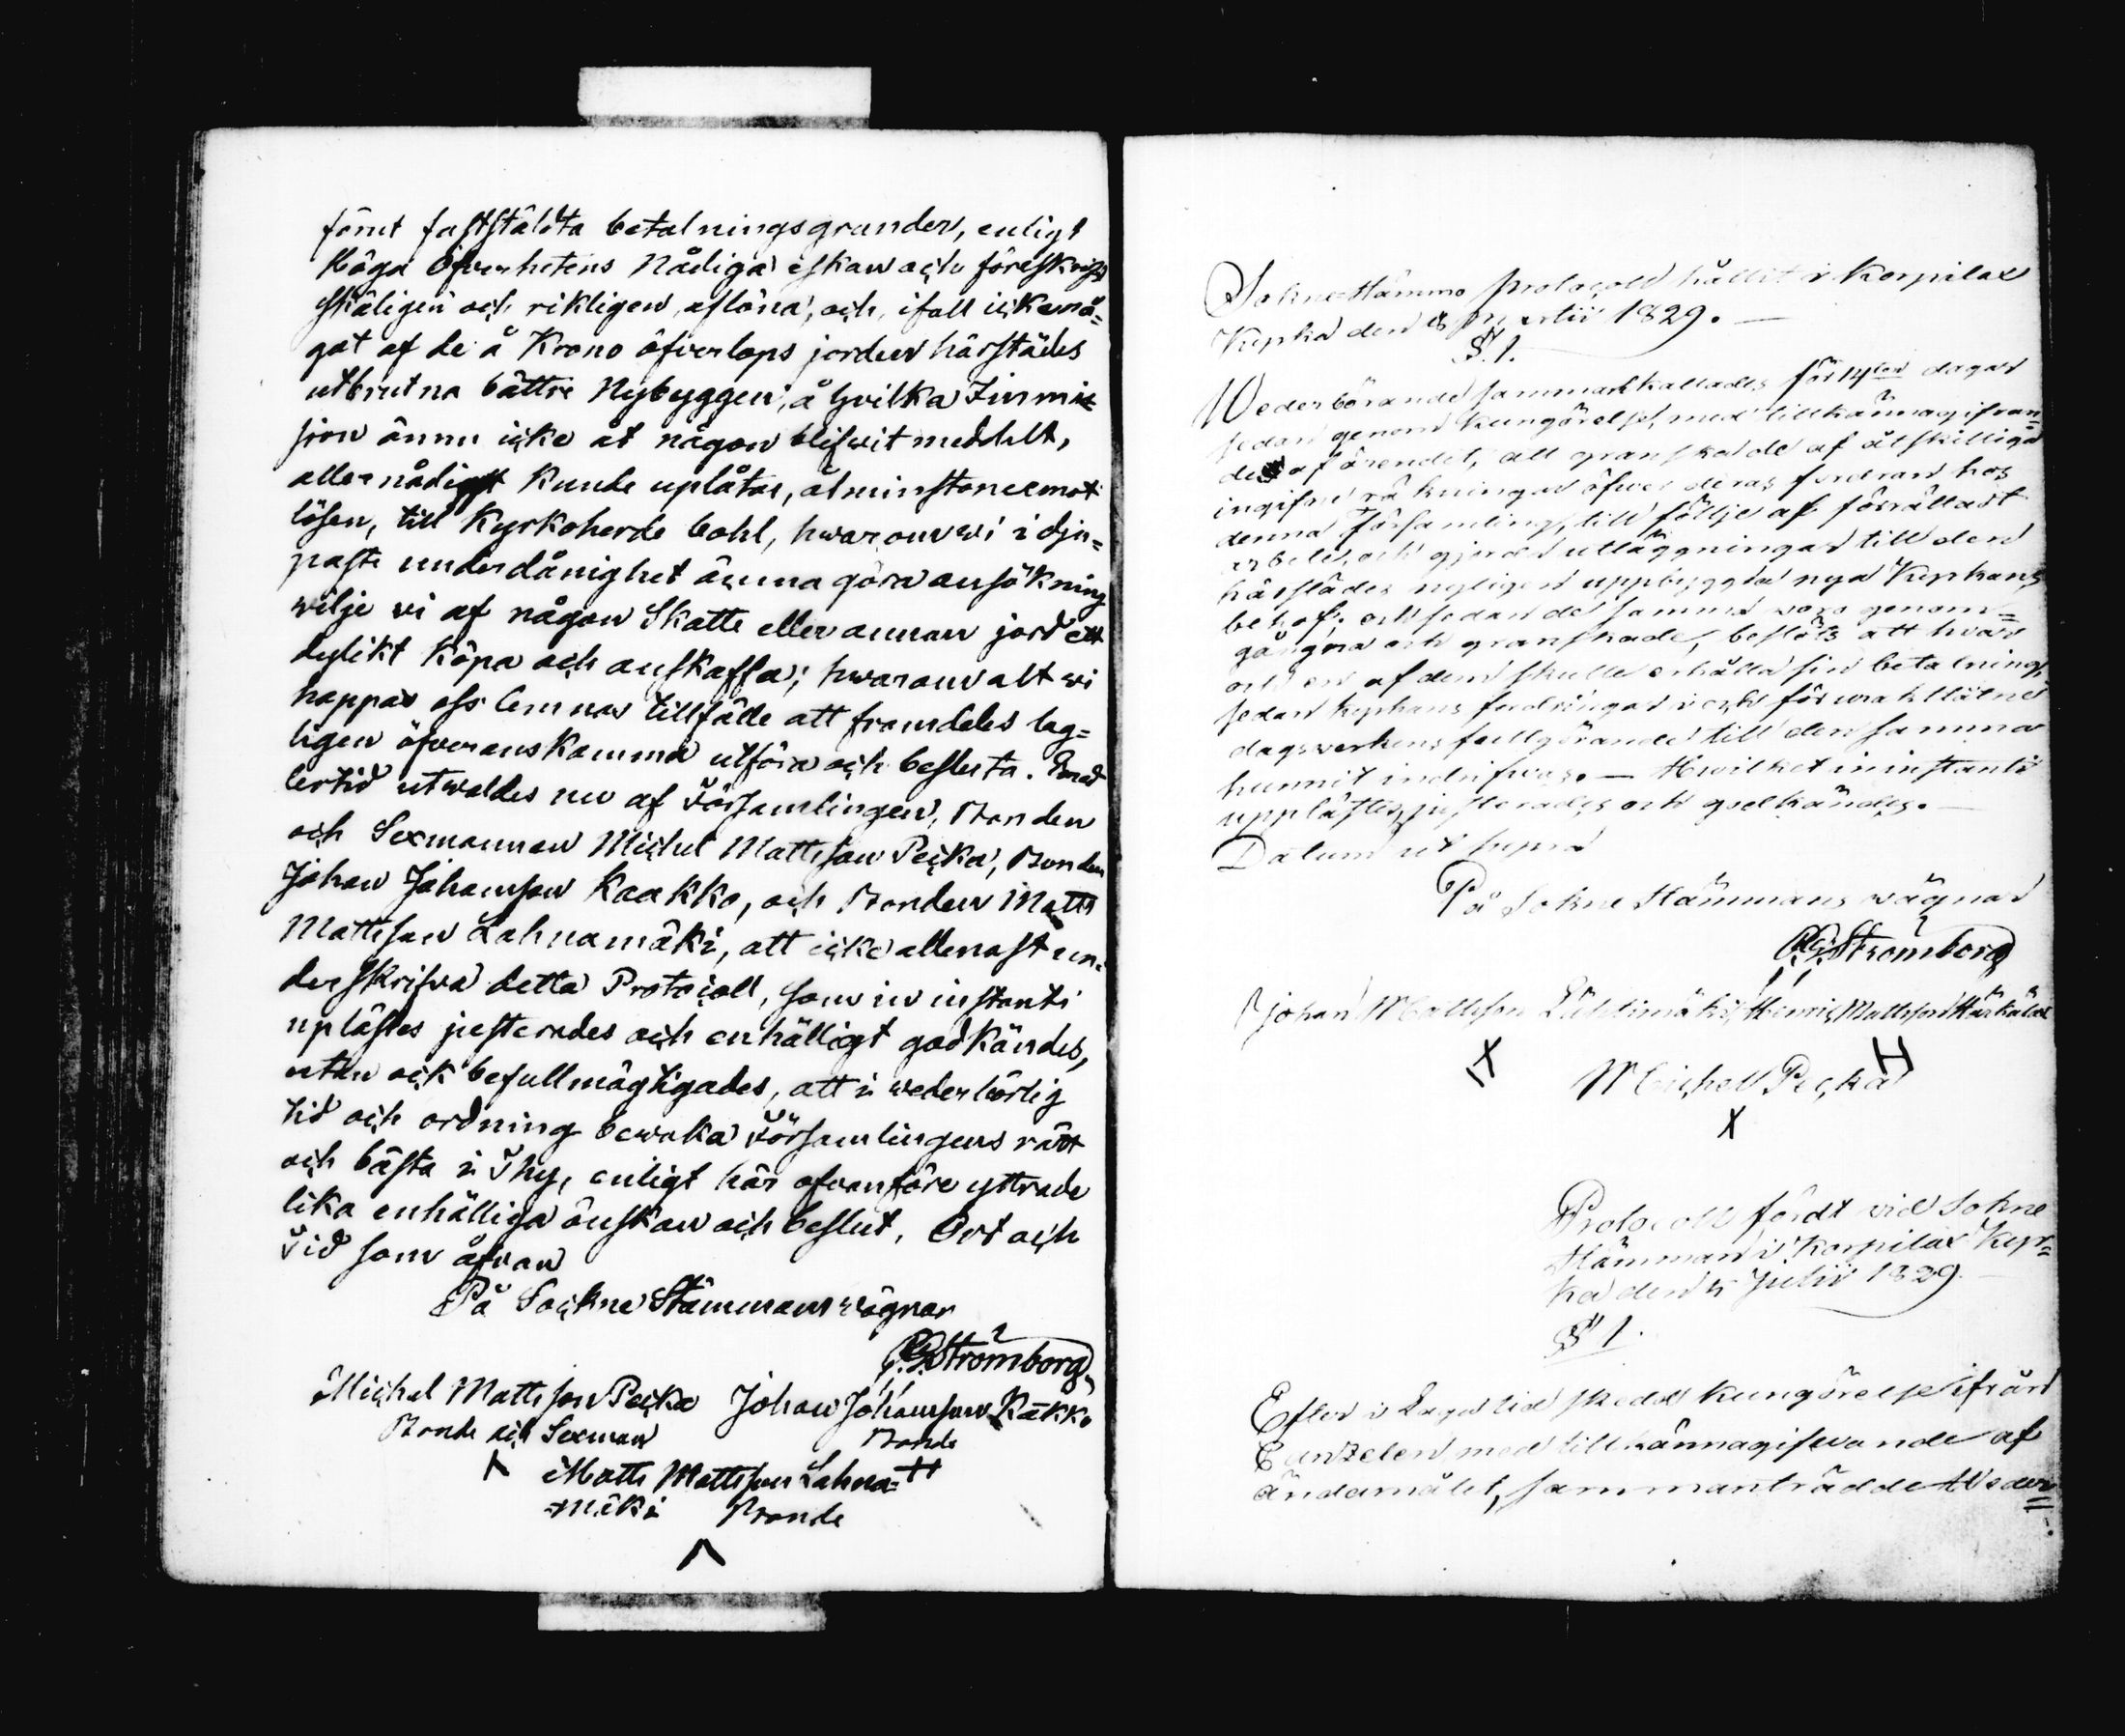 förut fastställdta betalningsgrunder, enligt
Höga Öfverhetens Nådiga önskan och föreskrift
skäligen och rikligen aflöna, och, ifall icke nå-
got af de å Krono öfverlops jorden härstädes
utbrutna bättre Nybyggen, å hvilka Inmis-
sion ännu icke åt någon blifwit meddelt,
allernådigst kunde uplåtas, åtminstone emot
lösen, till Kyrkoherde bohl, hwarom wi i dju-
paste underdånighet ämna göra ansökning
wilje vi af någon Skatte eller annan jord ett
dylikt köpa och anskaffa; hwarom alt wi
hoppas oss lemnas tillfälle att framdeles lag-
ligen öfverenskomma utföra och besluta. Emed-
lertid utwaldes nu af Församlingen, Bonden
och Sexmannen Michel Mattsson Pecka, Bonden
Johan Johansson Kaakko, och Bonden Matts
Mattsson Lahnamäki, att icke allenast un-
derskrifva detta Protocoll, som in instanti
uplästes justerades och enhälligt godkändes,
utan ock befullmägtigades, att i wederbörlig
tid och ordning bewaka Församlingens rätt
och bästa i Thy, enligt här ofvanföre yttrade
lika enhälliga önskan och beslut. Ort och
Tid som åfvan
På Sockne Stämmans wägnar
Strömborg
Michel Mattsson Pecka Johan Johansson Kakko
Bonde och Sexman Bonde
Matts Mattsson Lahna-
mäki Bonde
Sokne Stämmo Protocoll hållit i Korpilax
Kyrka den 8 Martii 1829. —
§. 1.
Wederbörande sammankallades för 14 dagar
sedan genom kungörelse, med tillkännagifvan-
de af ärendet, att granska de af åtskilliga
ingifne räkningar öfwer deras fordran hos
denna Församling, till följe af förrättadt
arbete, och gjorda utläggningar till den
härstädes nyligen uppbyggda nya Kyrkans
behof; och sedan de samma woro genom-
gångna och granskade, beslöts att hvar
och en af dem skulle erhålla sin betalning,
sedan kyrkans fordringar i och för uraktlåtne
dagsverkens fullgörande till den samma
hunnit indrifwas. — Hwilket in instanti
upplästes, justerades och godkändes. —
Datum ut supra
På Sokne Stämmans wägnar
Strömborg
Johan Mattsson Henric Mattsson
Michell Pecka
Protocoll fördt vid Sokne
Stämman i Korpilax Kyr-
ka den 5 Julii 1829.
§ 1.
Efter i Laga tid skedd kungörelse ifrån
med tillkännagifwande af
ändamålet, sammanträdde Weder-